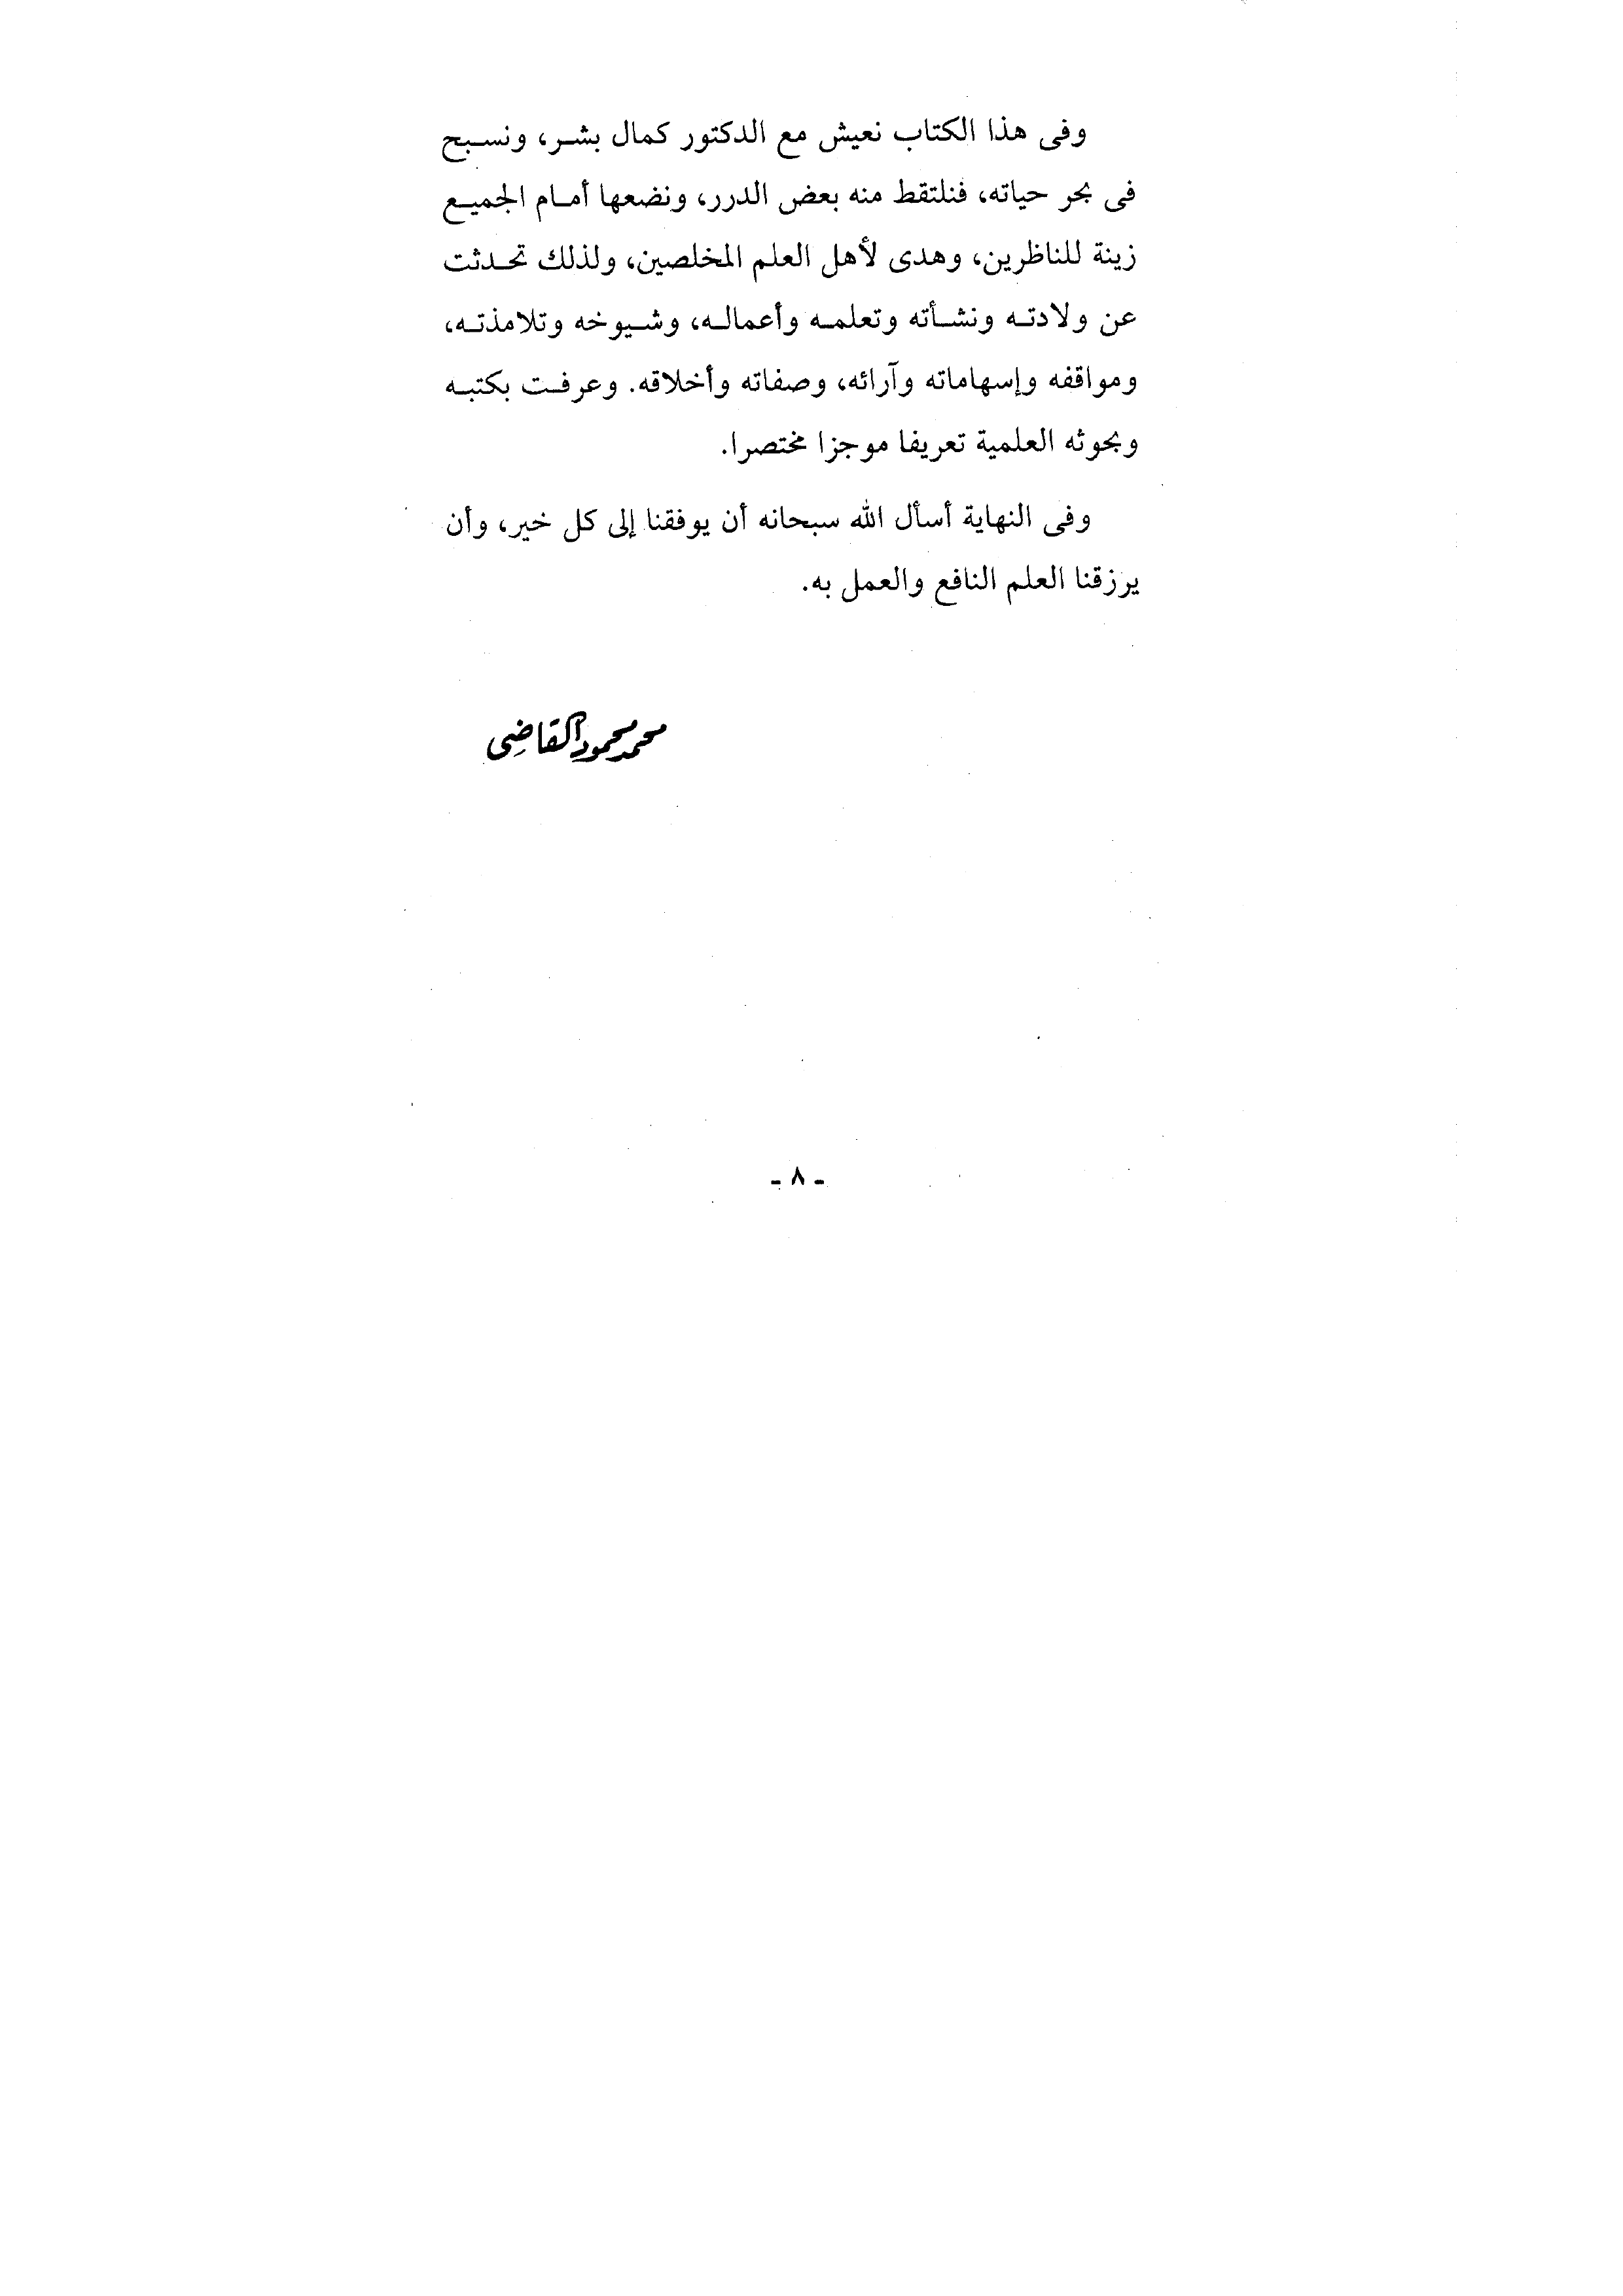 وفى هذا الكتاب نعيش مع الدكتور كمال بشر، ونسبح
فى بحر حياته، فنلتقط منه بعض الدرر، ونضعها أمام الجميع
زينة للناظرين، وهدى لأهل العلم المخلصين، ولذلك تحدثت
عن ولادته ونشأته وتعلمه وأعماله، وشيوخه وتلامذته،
ومواقفه وإسهاماته وآرائه، وصفاته وأخلاقه. وعرفت بكتبه
وبحوثه العلمية تعريفا موجزا مختصرا.
وفى النهاية أسأل الله سبحانه أن يوفقنا إلى كل خير، وأن
يرزقنا العلم النافع والعمل به.
محمد محمود القاضِى
- ٨ -